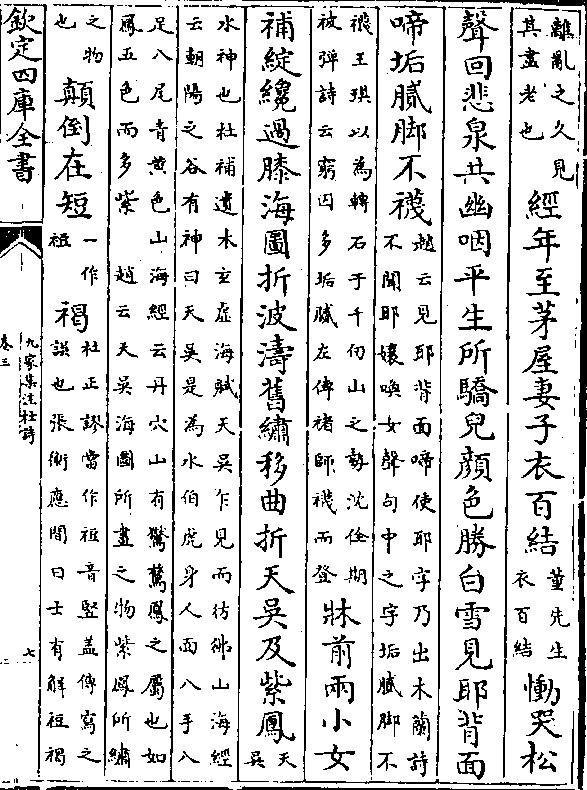 離亂之久見
其盡老也
經年至茅屋妻子衣百結
董先生
衣百結
慟哭松
聲回悲泉共幽咽平生所驕兒顏色勝白雪見耶背面
啼垢膩脚不襪
趙云見耶背面啼使耶字乃出木蘭詩
不聞耶孃喚女聲句中之字垢膩脚不
襪王琪以為轉石于千仞山之勢沈佺期
被彈詩云窮囚多垢膩左傳褚師襪而登
牀前兩小女
補綻纔過膝海圖折波濤舊繡移曲折天吳及紫鳳
天
吳
水神也杜補遺木玄虛海賦天吳乍見而彷彿山海經
云朝陽之谷有神曰天吳是為水伯虎身人面八手八
足八尾青黃色山海經云丹穴山有鸑鷟鳳之屬也如
鳳五色而多紫 趙云天吳海圖所畫之物紫鳳所繡
之物
也
顛倒在短
一作
裋
褐
杜正謬當作裋音豎蓋傳寫之
誤也張衡應間曰士有解裋褐
欽定四庫全書
九家集注杜詩
卷三
七